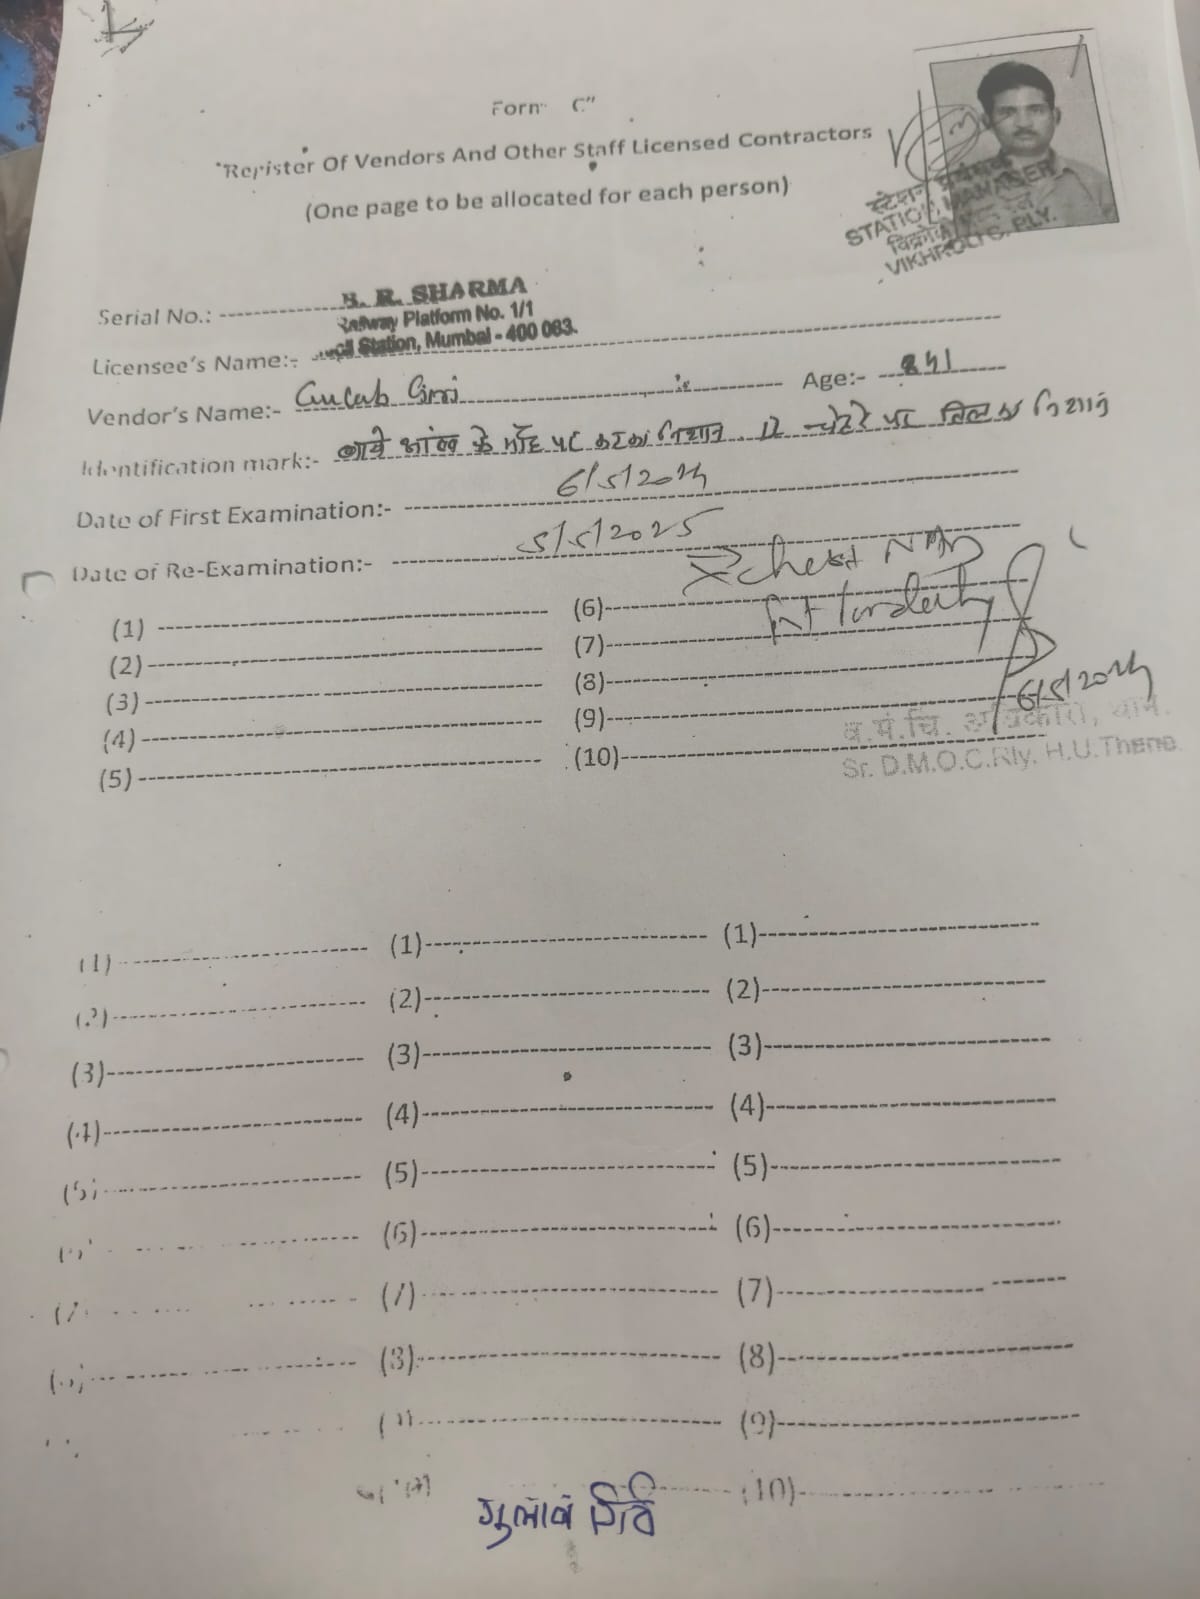 Form C"
"Register Of Vendors And Other Staff Licensed Contractors
(One page to be allocated for each person)
स्टेशन प्रबंधक
STATION MANAGER
VIKHROLI C. RLY.
Serial No.:
R. SHARMA
Railway Platform No. 1/1
Station, Mumbai - 400 083.
Licensee's Name:-
Vendor's Name:- Gulab Giri Age:-
Identification mark:- के पर निशान पर तिल का निशान
Date of First Examination:- 6/5/2024
Date of Re-Examination:- 5/5/2025
chest
(1) (6)
(2) (7)
(3) (8)
(4) (9)
(5) (10)
6/5/2024
व.मं.चि. अधिकारी,
Sr. D.M.O.C.Rly. H.U.Thane
(1) (1) (1)
(2) (2) (2)
(3) (3) (3)
(4) (4) (4)
(5) (5) (5)
(6) (6)
(7) (7)
(8) (8)
(9)
(10)
गुलाब गिरि